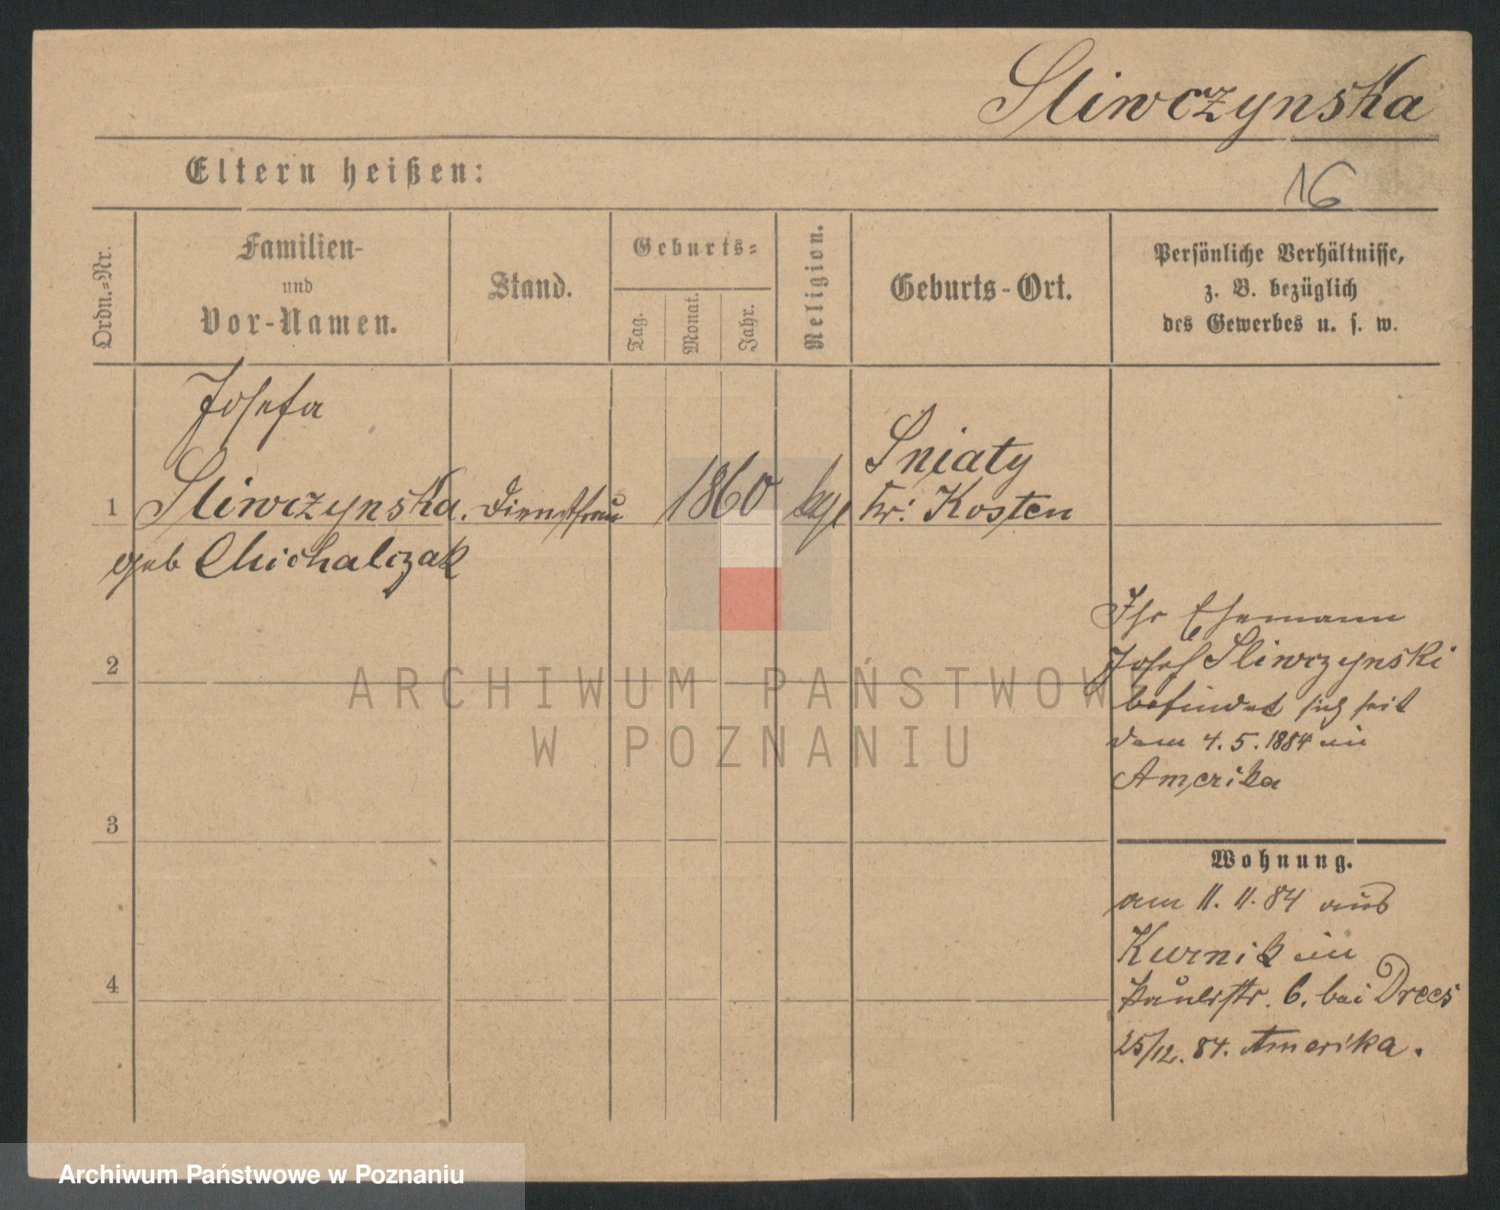 Sliwczynska
Eltern heißen:
16
Ordn.-Nr.
Familien-
und
Vor-Namen.
Stand.
Geburts-
Tag.
Monat.
Jahr.
Religion.
Geburts-Ort.
Persönliche Verhältnisse,
z. B. bezüglich
des Gewerbes u. s. w.
Josefa
1 Sliwczynska. Dienstfrau 1860 Sniaty
Kr: Kosten
geb Michalczak
2
3
4
Ihr Ehemann
Josef Sliwczynski
befindet sich seit
dem 4. 5. 1884 in
Amerika
Wohnung.
am 11. 11. 84 aus
Kurnik in
Paulistr. 6. bei Drees
25/12. 84. Amerika.
ARCHIWUM PAŃSTWOWE
W POZNANIU
Archiwum Państwowe w Poznaniu